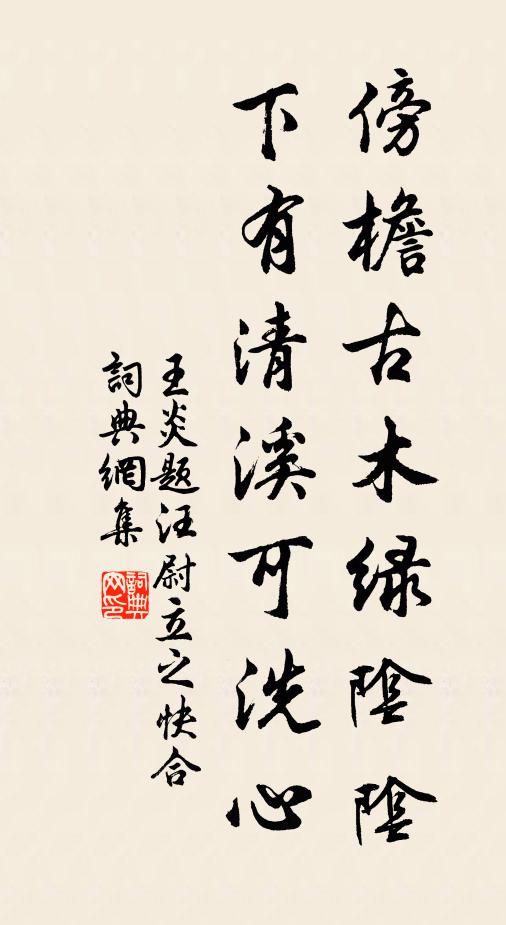 傍檐古木緑陰陰
下有清溪可洗心
王炎題汪尉立之快合
詞典網集
詞典网印